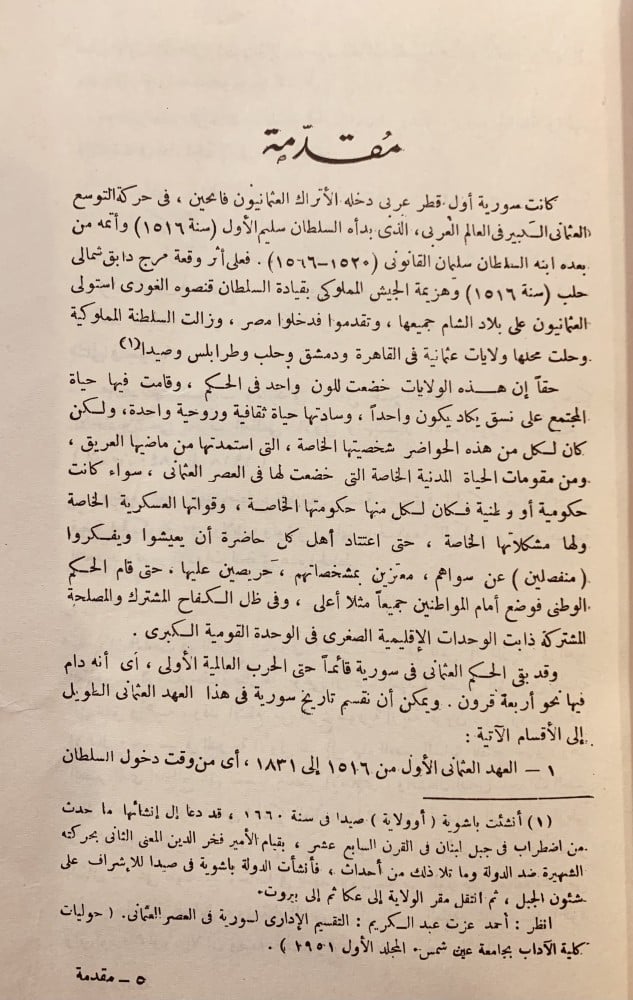 مُقدّمة
كانت سورية أول قطر عربى دخله الأتراك العثمانيون فاتحين ، فى حركة التوسع
العثمانى الكبير فى العالم العربى، الذى بدأه السلطان سليم الأول (سنة ١٥١٦) وأتمه من
بعده ابنه السلطان سليمان القانونى (١٥٢٠–١٥٦٦) . فعلى أثر وقعة مرج دابق شمالى
حلب (سنة ١٥١٦) وهزيمة الجيش المملوكى بقيادة السلطان قنصوه الغورى استولى
العثمانيون على بلاد الشام جميعها ، وتقدموا فدخلوا مصر ، وزالت السلطنة المملوكية
وحلت محلها ولايات عثمانية فى القاهرة ودمشق وحلب وطرابلس وصيدا(١)
حقاً إن هـذه الولايات خضعت للون واحد فى الحكم ، وقامت فيها حياة
المجتمع على نسق يكاد يكون واحداً ، وسادتها حياة ثقافية وروحية واحدة، ولكن
كان لكل من هذه الحواضر شخصيتها الخاصة ، التى استمدتها من ماضيها العريق ،
ومن مقومات الحياة المدنية الخاصة التى خضعت لها فى العصر العثمانى ، سواء كانت
حكومية أو وطنية فكان لكل منها حكومتها الخاصة ، وقواتها العسكرية الخاصة
ولها مشكلاتها الخاصة ، حتى اعتتاد أهل كل حاضرة أن يعيشوا ويفكروا
(منفصلين) عن سواهم ، معتزين بمشخصاتهم ، حريصين عليها ، حتى قام الحكم
الوطنى فوضع أمام المواطنين جميعاً مثلا أعلى ، وفى ظل الكفاح المشترك والمصلحة
المشتركة ذابت الوحدات الإقليمية الصغرى فى الوحدة القومية الكبرى .
وقد بقى الحكم العثمانى فى سورية قائماً حتى الحرب العالمية الأولى ، أى أنه دام
فيها نحو أربعة قرون . ويمكن أن نقسم تاريخ سورية فى هذا العهد العثمانى الطويل
إلى الأقسام الآتية :
١ – العهد العثمانى الأول من ١٥١٦ إلى ١٨٣١ ، أى من وقت دخول السلطان
(١) أنشئت باشوية (أوولاية) صيدا فى سنة ١٦٦٠ ، قد دعا إلى إنشائها ما حدث
من اضطراب فى جبل لبنان فى القرن السابع عشر ، بقيام الأمير فخر الدين المعنى الثانى بحركته
الشهيرة ضد الدولة وما تلا ذلك من أحداث ، فأنشأت الدولة باشوية فى صيدا للإشراف على
شئون الجبل ، ثم انتقل مقر الولاية إلى عكا ثم إلى بيروت.
انظر : أحمد عزت عبد الكريم : التقسيم الإدارى لسورية فى العصر العثمانى. (حوليات
كلية الآداب بجامعة عين شمس. المجلد الأول ١٩٥١) .
٥ – مقدمة